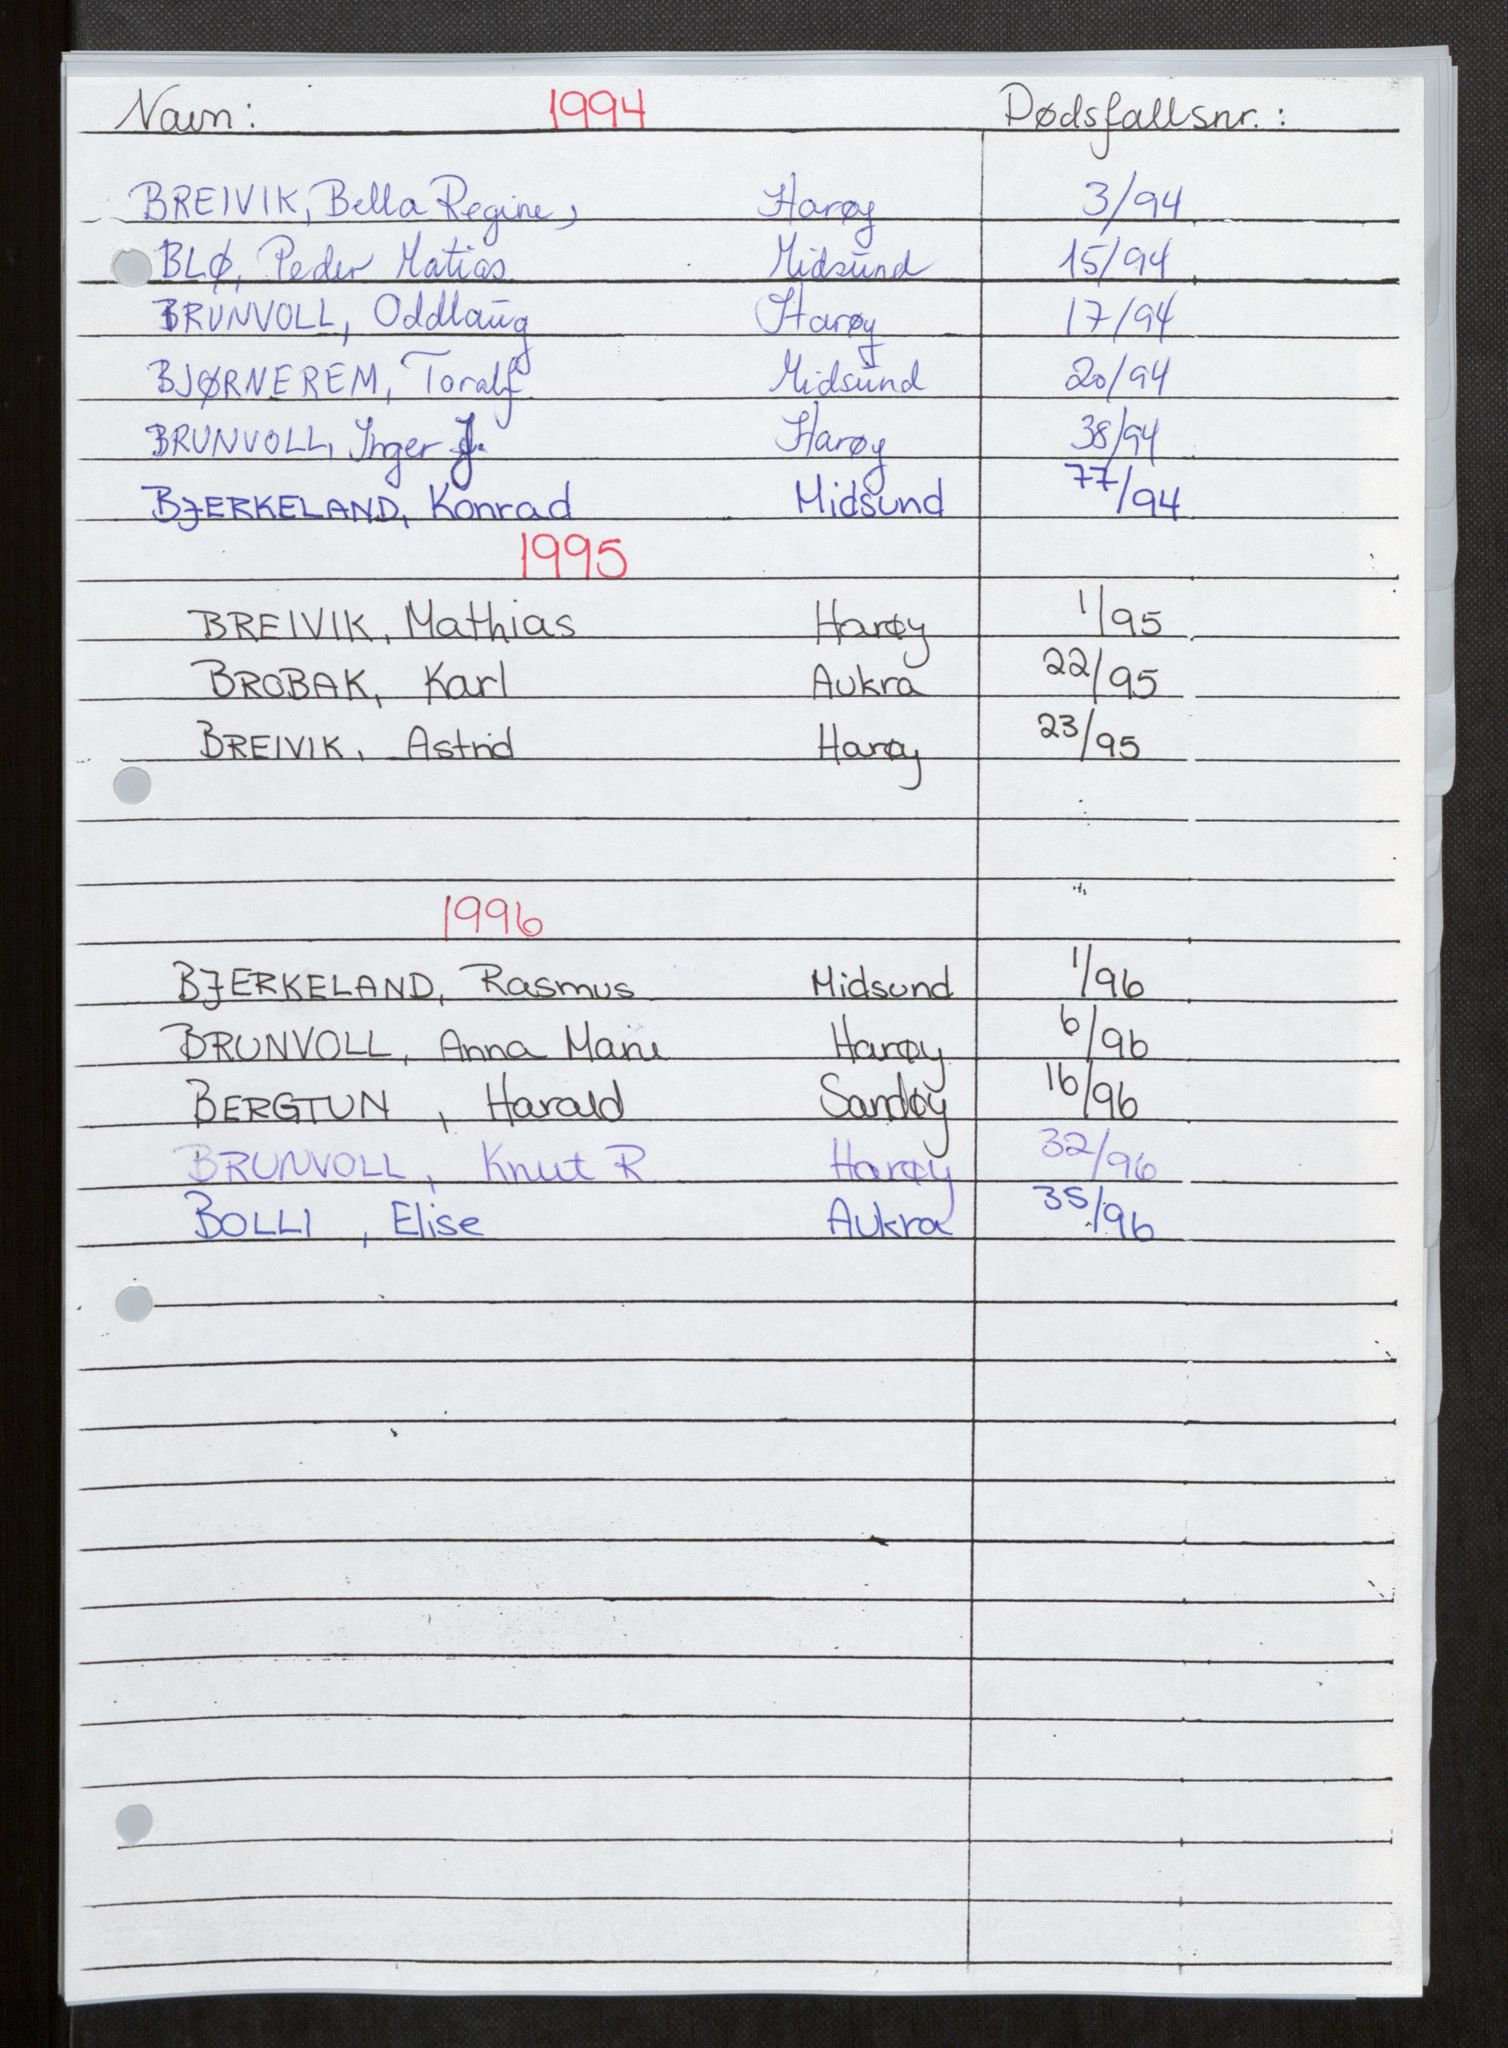 Navn: 1994 Dødsfallsnr.:
BREIVIK, Bella Regine, Harøy 3/94
BLØ, Peder Matias Midsund 15/94
BRUNVOLL, Oddlaug Harøy 17/94
BJØRNEREM, Toralf Midsund 20/94
BRUNVOLL, Inger J. Harøy 38/94
BJERKELAND, Konrad Midsund 77/94
1995
BREIVIK, Mathias Harøy 1/95
BROBAK, Karl Aukra 22/95
BREIVIK, Astrid Harøy 23/95
1996
BJERKELAND, Rasmus Midsund 1/96
BRUNVOLL, Anna Marie Harøy 6/96
BERGTUN, Harald Sandøy 16/96
BRUNVOLL, Knut R Harøy 32/96
BOLLI, Elise Aukra 35/96